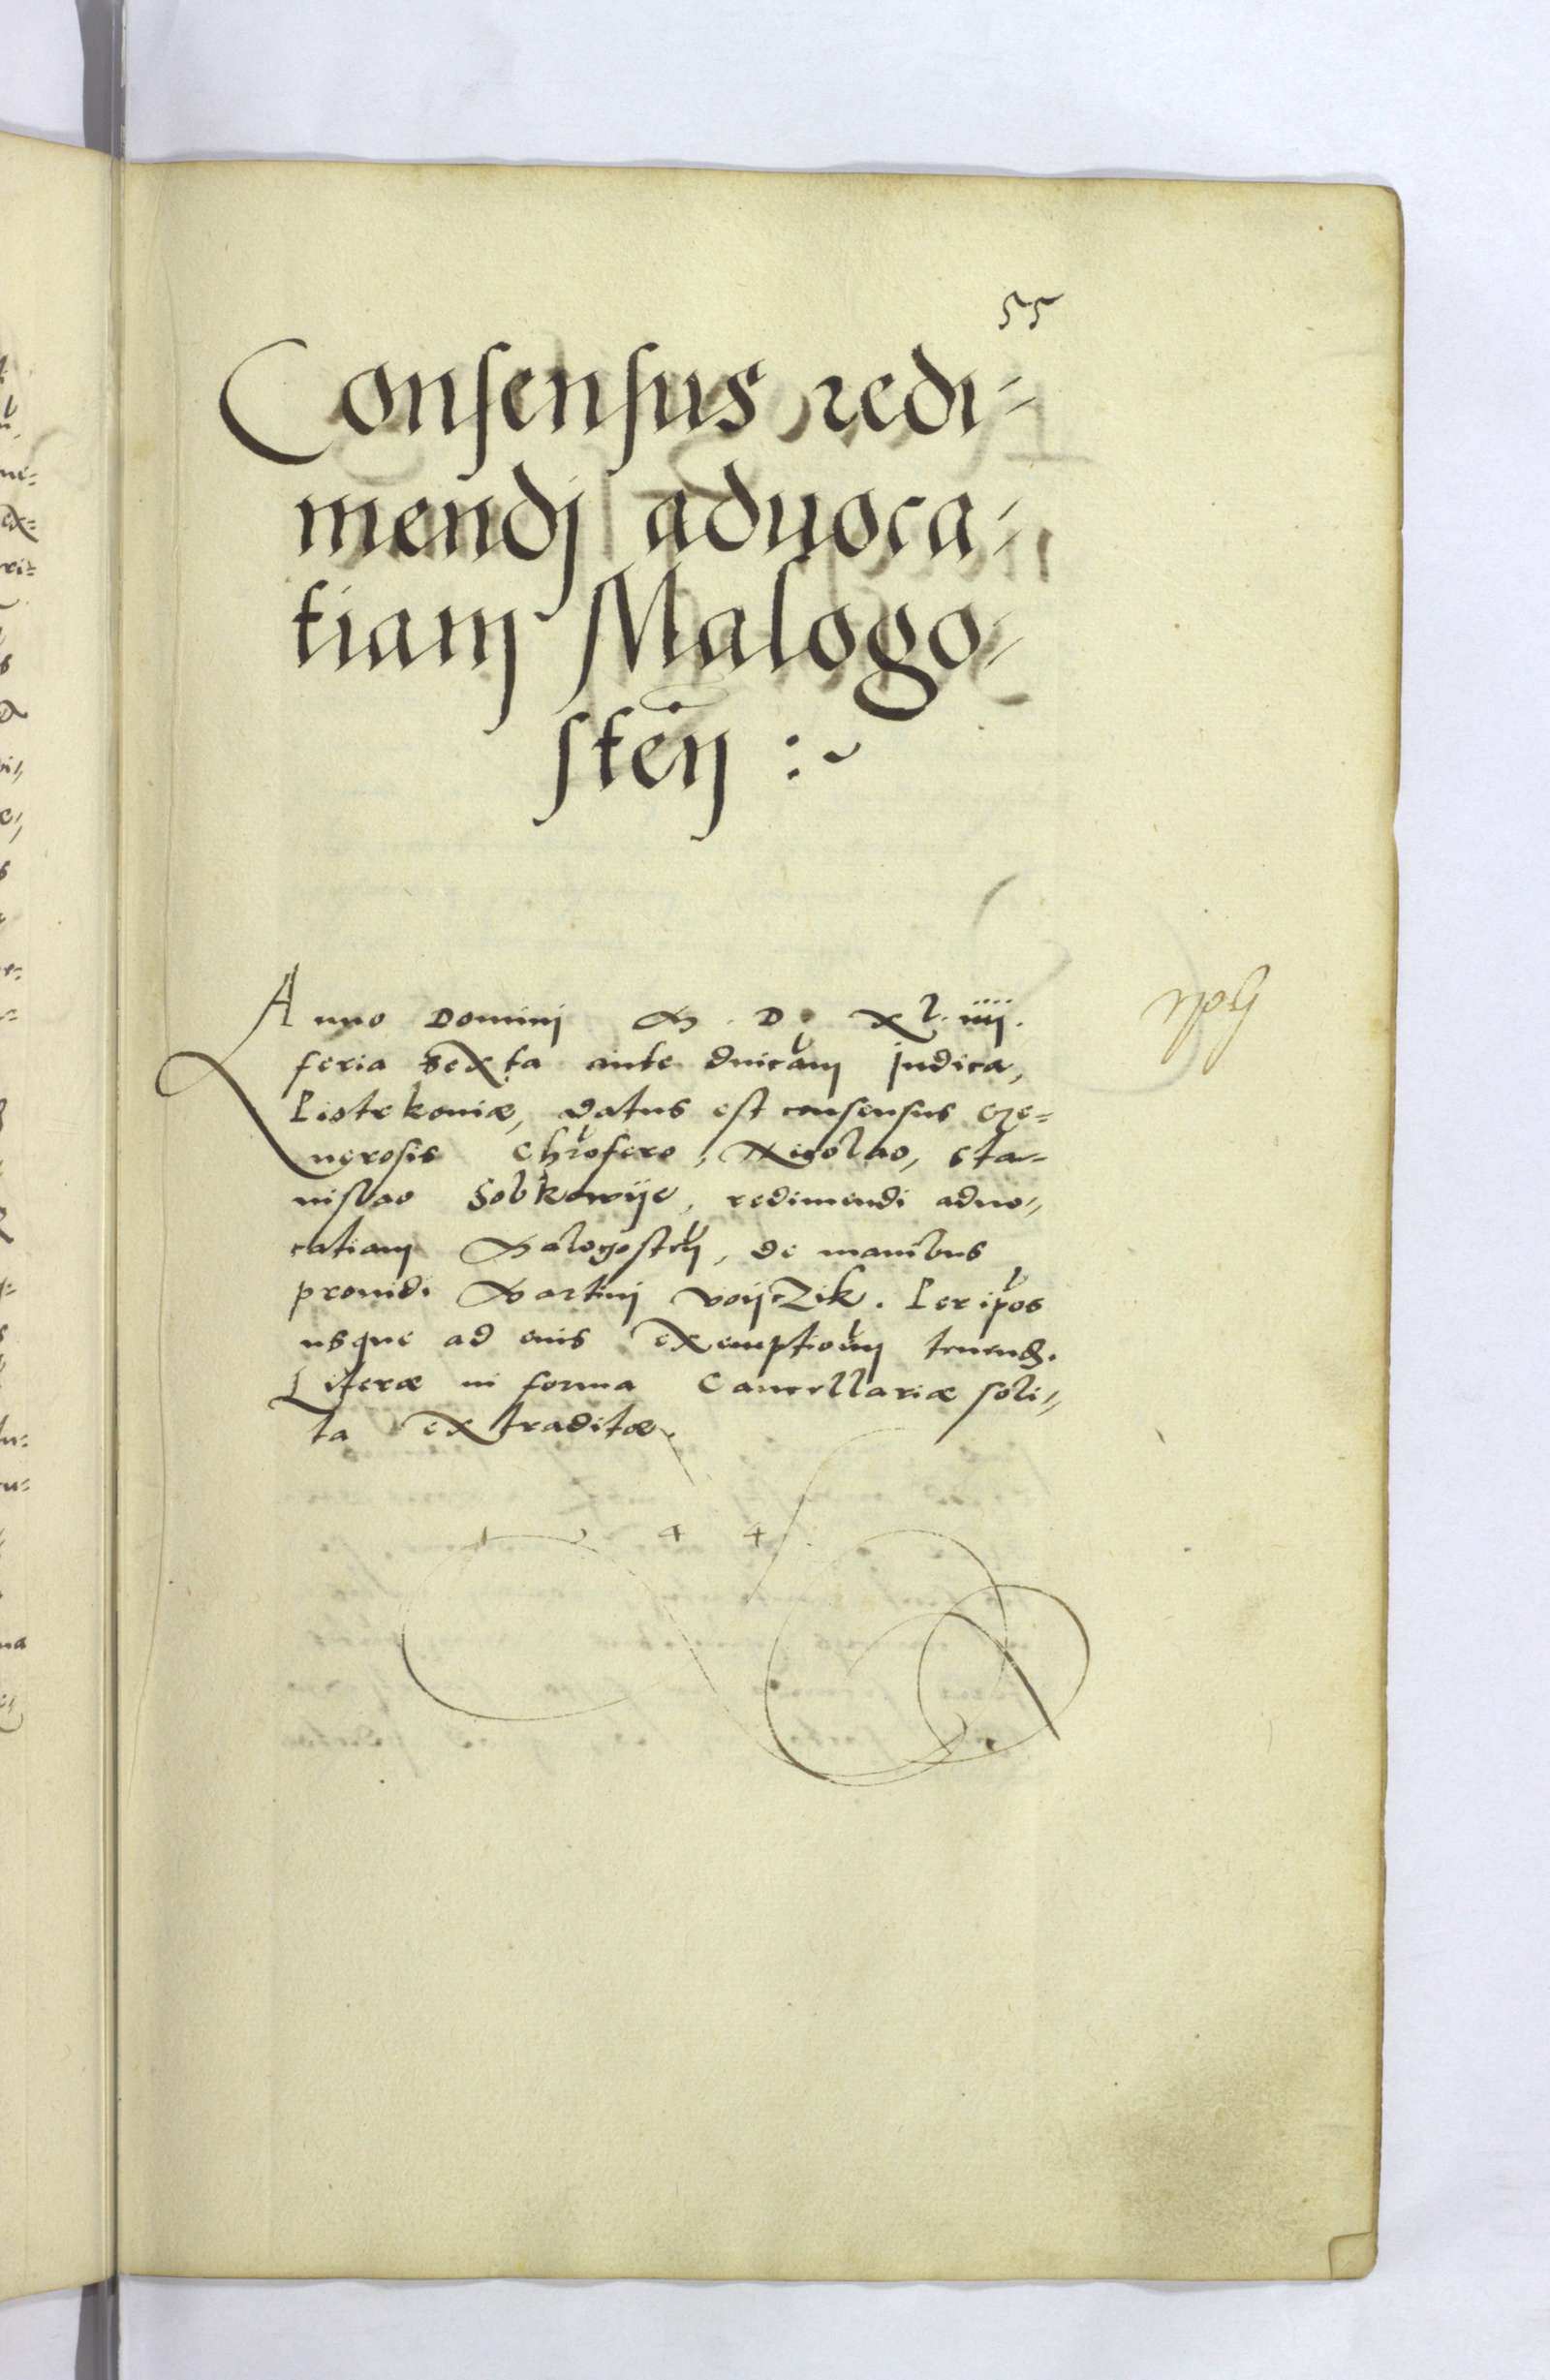 55
Consensus redi-
mendj aduoca-
tiam Malogo-
sten̄ :~
Anno Domini M. D. xl. iiij.
feria sexta ante dnicam Judica,
Piotrkoniæ, datus est consensus Ge=
nerosis Chrofero, Nicolao, Sta=
nislao Sobkowije, redimendi aduo=
catiam Malogostn, de manibus
prouidi Martinj Voijczik. Per ipos
usque ad euis exemptiom tenend.
Literæ in forma Cancellariæ soli=
ta extraditæ.